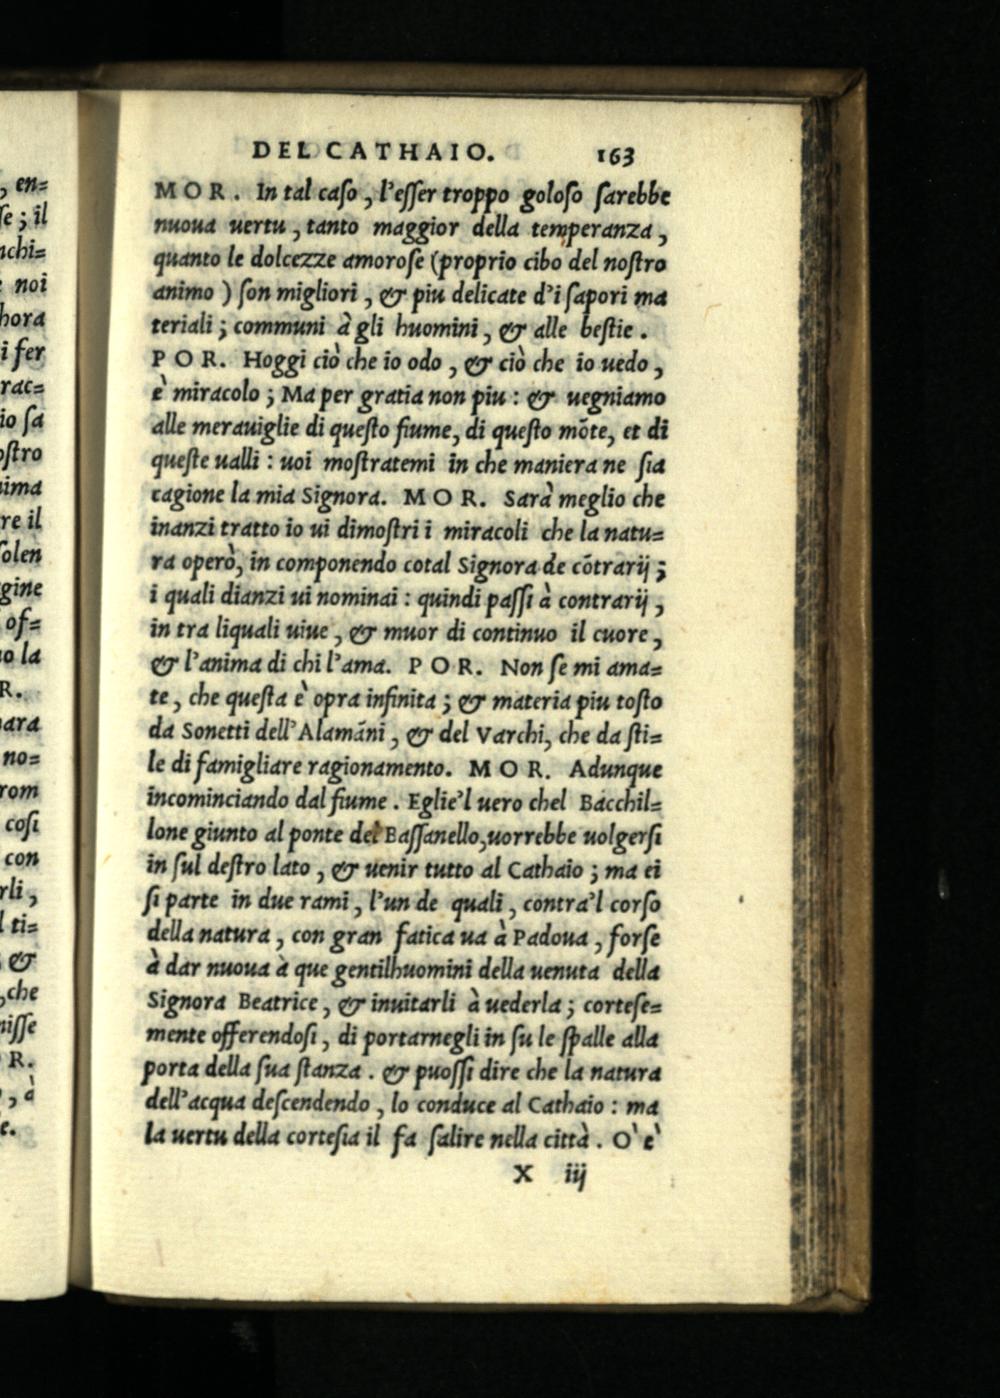 DEL CATHAIO. 163
MOR. In tal caſo, l'eſſer troppo goloſo ſarebbe
nuoua uertu, tanto maggior della temperanza,
quanto le dolcezze amoroſe (proprio cibo del noſtro
animo) ſon migliori, & piu delicate d'i ſapori ma
teriali; communi à gli huomini, & alle beſtie.
POR. Hoggi ciò che io odo, & ciò che io uedo,
è miracolo; Ma per gratia non piu: & uegniamo
alle merauiglie di queſto fiume, di queſto mõte, et di
queſte ualli: uoi moſtratemi in che maniera ne ſia
cagione la mia Signora. MOR. Sarà meglio che
inanzi tratto io ui dimoſtri i miracoli che la natu=
ra operò, in componendo cotal Signora de cõtrarij;
i quali dianzi ui nominai: quindi paſſi à contrarij,
in tra liquali uiue, & muor di continuo il cuore,
& l'anima di chi l'ama. POR. Non ſe mi ama=
te, che queſta è opra infinita; & materia piu toſto
da Sonetti dell'Alamãni, & del Varchi, che da ſti=
le di famigliare ragionamento. MOR. Adunque
incominciando dal fiume. Eglie'l uero chel Bacchil=
lone giunto al ponte del Baſſanello, uorrebbe uolgerſi
in ſul deſtro lato, & uenir tutto al Cathaio; ma ei
ſi parte in due rami, l'un de quali, contra'l corſo
della natura, con gran fatica ua à Padoua, forſe
à dar nuoua à que gentilhuomini della uenuta della
Signora Beatrice, & inuitarli à uederla; corteſe=
mente offerendoſi, di portarnegli in ſu le ſpalle alla
porta della ſua ſtanza. & puoſſi dire che la natura
dell'acqua deſcendendo, lo conduce al Cathaio: ma
la uertu della corteſia il fa ſalire nella città. O' è
X iij
, en=
ſe; il
nchi=
noi
hora
i fer
rac=
io ſa
oſtro
nima
re il
ſolen
gine
of=
no la
R.
nara
no=
rom
coſi
con
rli,
l ti=
&
, che
niſſe
R.
, à
e.